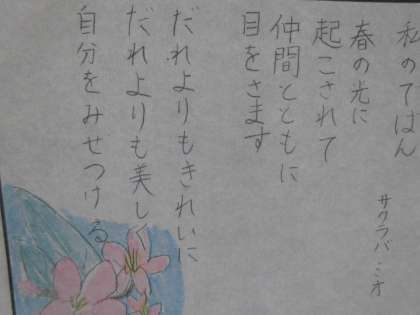 私のでばん
サクラバ ミオ
春の光に
起こされて
仲間とともに
目をさます
だれよりもきれいに
だれよりも美しく
自分をみせつける